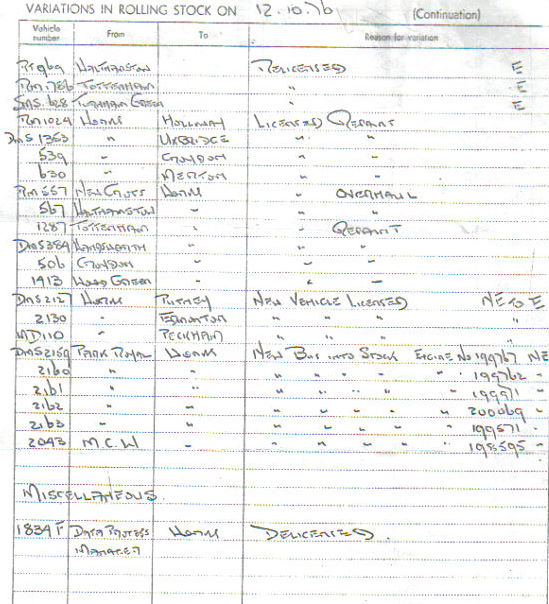 VARIATIONS IN ROLLING STOCK ON 12.10.76 (Continuation)
Vehicle number From To Reason for variation
RT969 WALTHAMSTOW RELICENSED E
RM1786 TOTTENHAM " E
SMS.628 TURNHAM GREEN " E
RM1029 WORKS HOLLOWAY LICENSED REPAINT
DMS1353 " UXBRIDGE " "
539 " CROYDON " "
630 " MERTON " "
RM557 NEW CROSS WORKS " OVERHAUL
567 WALTHAMSTOW " " "
1287 TOTTENHAM " " REPAINT
DMS384 WANDSWORTH " " "
506 CROYDON " " "
1913 WOOD GREEN " "
DMS2127 WORKS PUTNEY NEW VEHICLE LICENSED NE TO E
2130 " EDMONTON " " " "
MD110 " PECKHAM " " " "
DMS2159 PARK ROYAL WORKS NEW BUS INTO STOCK ENGINE No 199767 NE
2160 " " " " " " " " 199762 "
2161 " " " " " " " " 199971 "
2162 " " " " " " " 200069 "
2163 " " " " " " " 199571 "
2043 M.C.W " " " " " " 198595 "
MISCELLANEOUS
1839F DATA PROCESS WORKS DELICENSED.
MANAGER